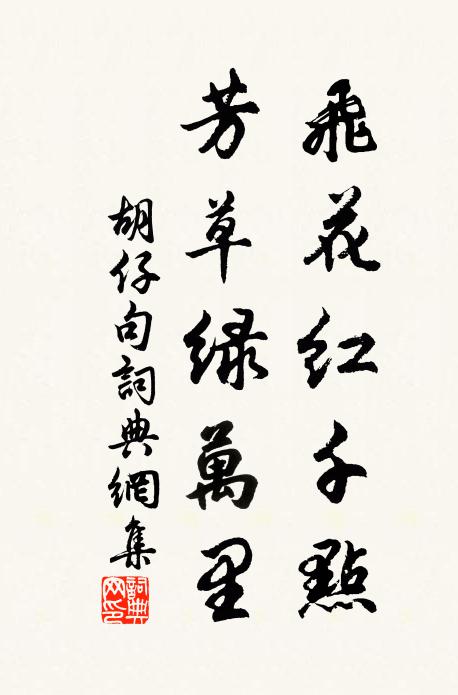 飛花紅千點
芳草緑萬里
胡仔句詞典網集
詞典網印